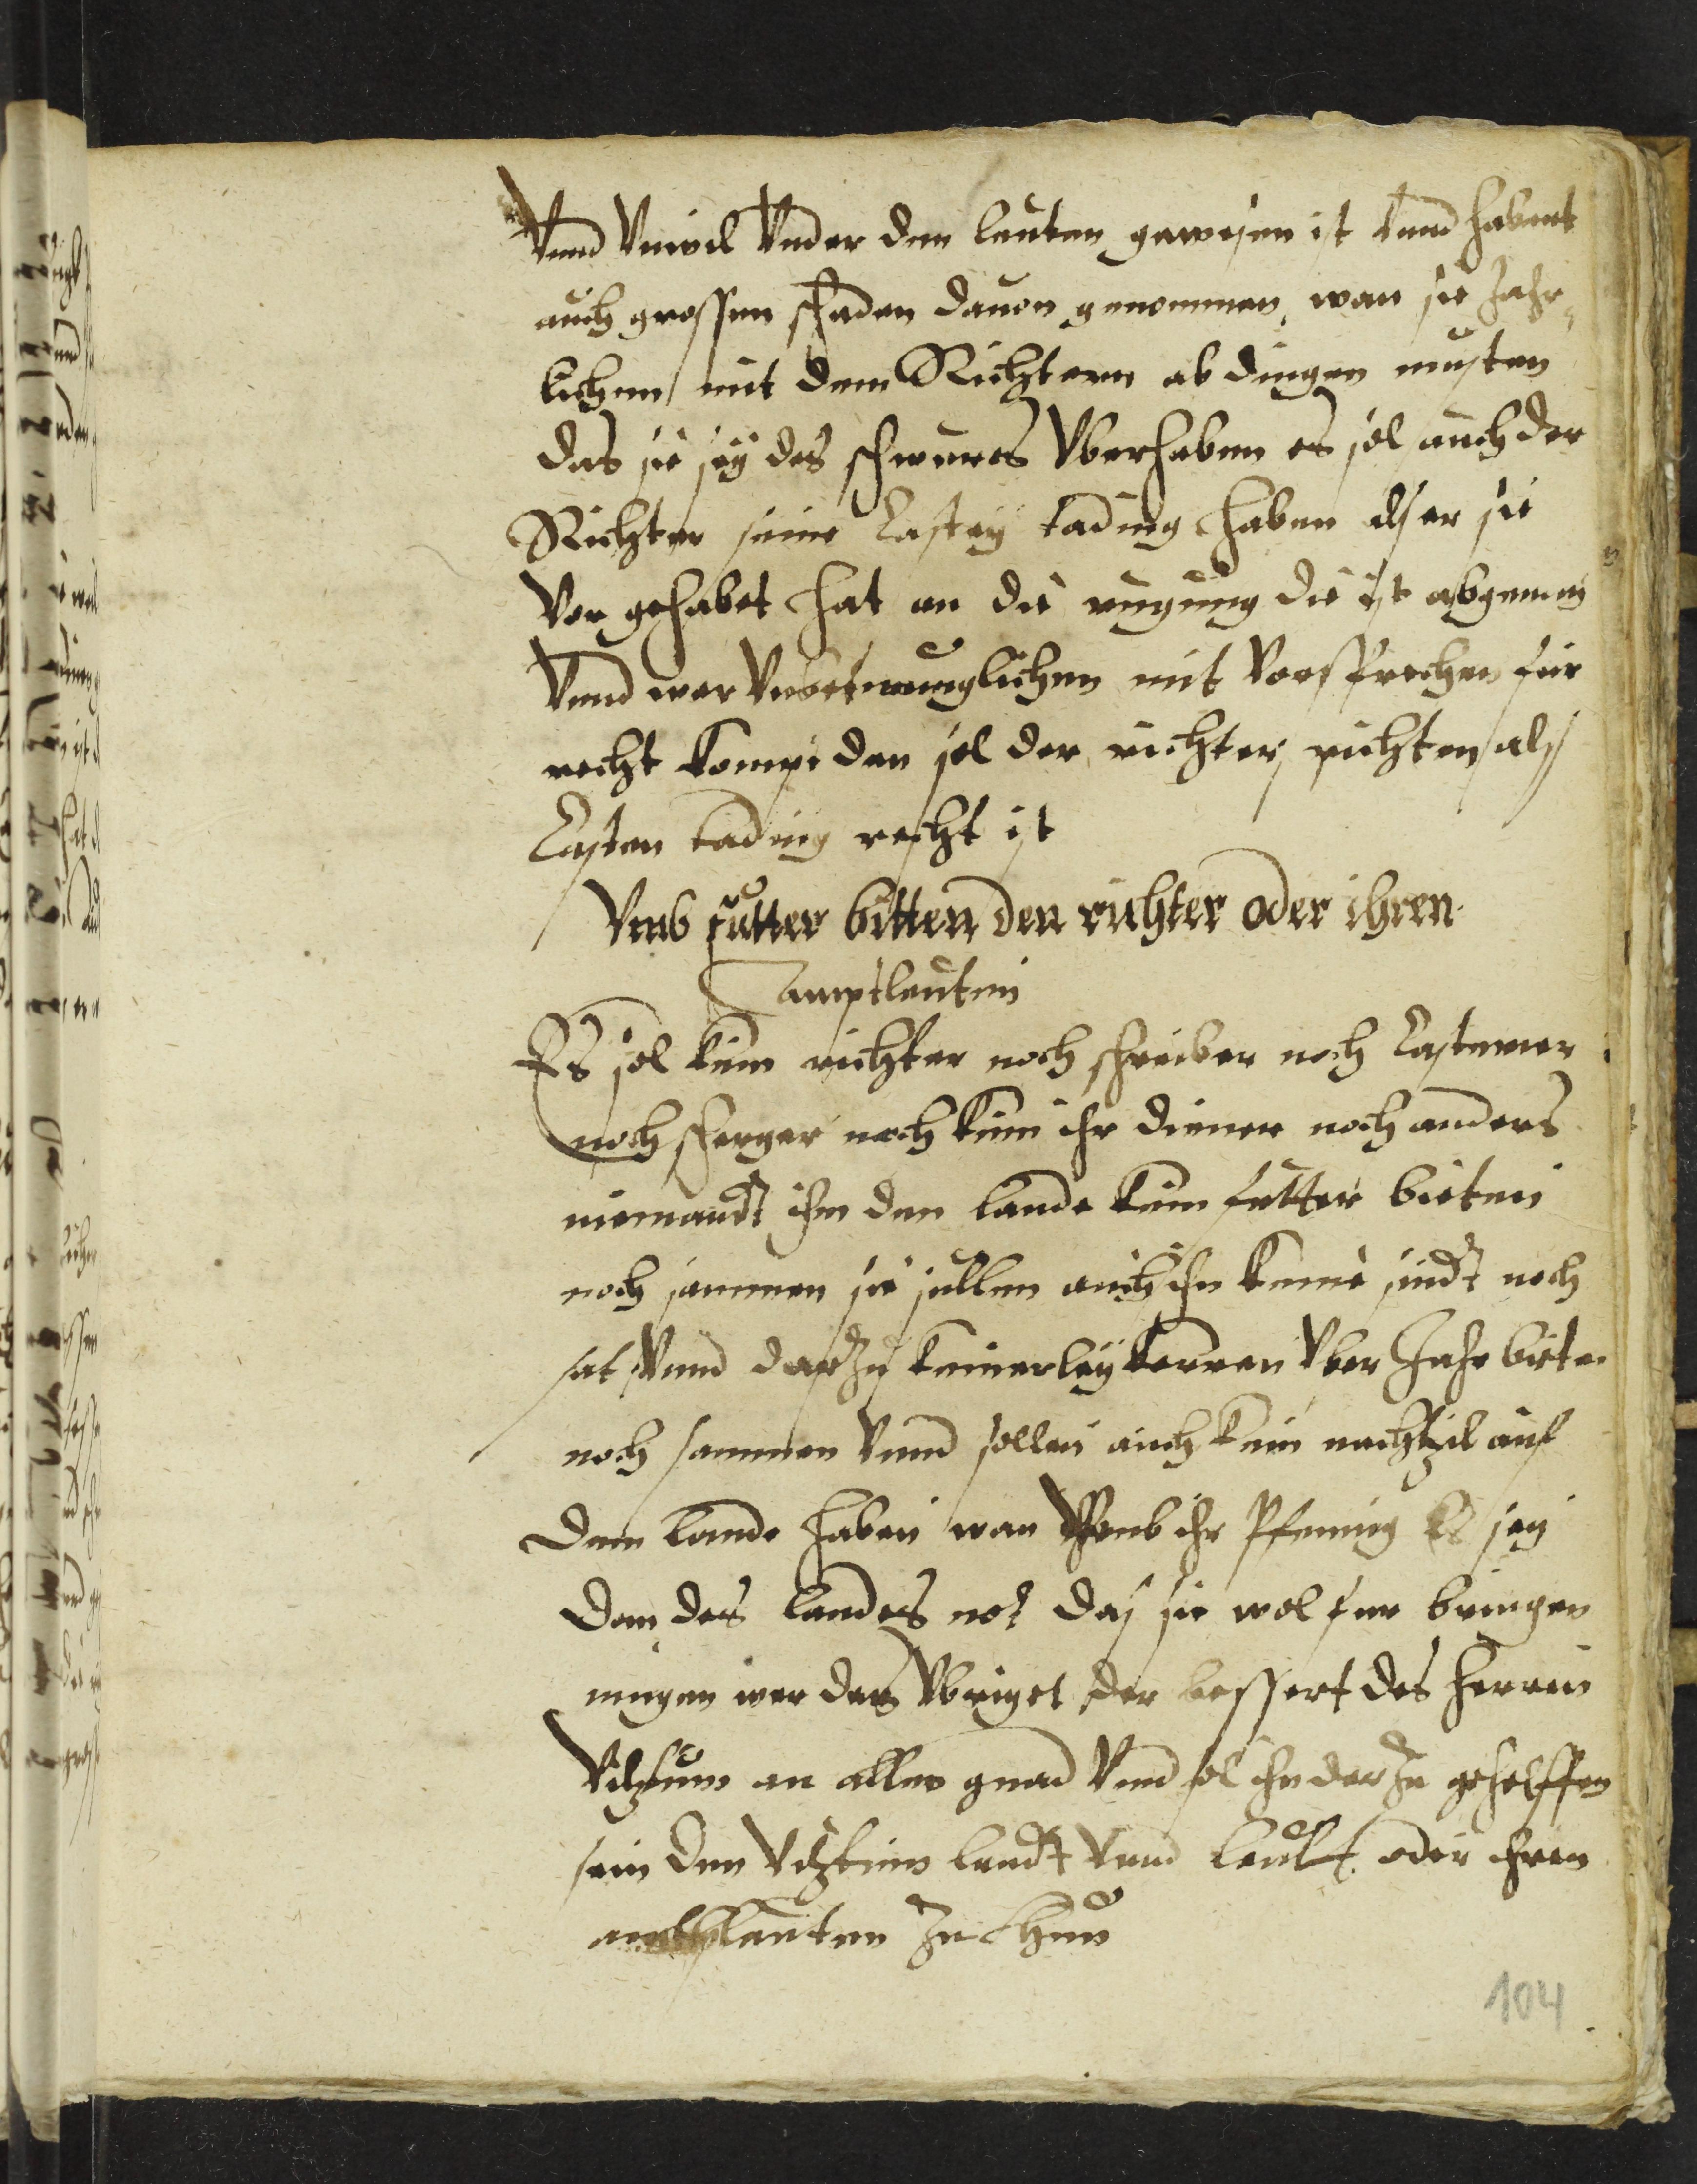 Vnnd Vnwil Vnder den leuten gewesen ist Vnnd habent
auch grossen schaden dauon genommen, wan sie Jahr„
lichen mit dem Richtern ab dingen musten
das sie sey des schwures Vberhaben es sol auch der
Richter seine Castey tading haben als er sie
Vor gehabet hat an die rugung die ist abgenom̃
Vnnd wer Vnbetwunglichen mit Vorsprechen für
recht kompt den sol der richter richten als
Casten tading recht ist
Vmb futter bitten den richter oder ihren
amptleuten
Es sol kein richter noch schreiber noch Castener
noch scherger noch kein ihr diener noch anders
niemandt ihm den lande kein futter bieten
noch sammen sie sullen auch ihn keine sindt noch
sat Vnnd darzu keinerley korren Vber Jahr biten
noch sammen Vnnd sollen auch kein nachtzil auf
dem lande haben wan Vmb ihr Pfennig Es sey
dan des landes not das sie wol fur bringen
mugen wer das Vbriget der bessert des herren
Vitztum an alles gnad Vnd sol ihn darzu geholffen
sein den Vitztum landt Vnnd leudt oder ihren
amptleuten zu thun
104